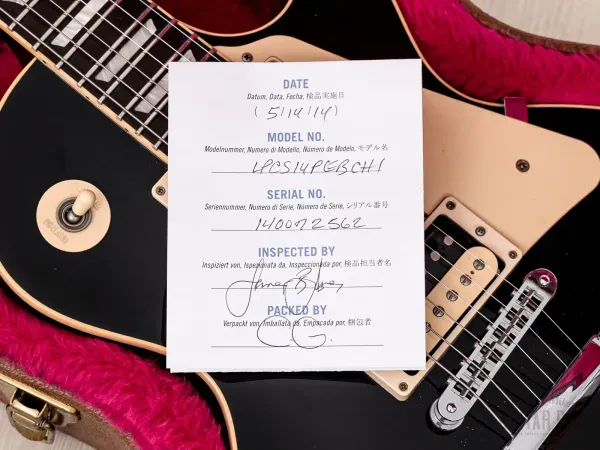 DATE
Datum, Data, Fecha, 検品実施日
(5/14/14)
MODEL NO.
Modelnummer, Numero di Modello, Número de Modelo, モデル名
LPCS14PEBCH1
SERIAL NO.
Seriennummer, Numero di Serie, Número de Serie, シリアル番号
140072562
INSPECTED BY
Inspiziert von, Ispezionata da, Inspeccionada por, 検品担当者名
PACKED BY
Verpackt von, Imballata da, Empacada por, 梱包者
C.G.